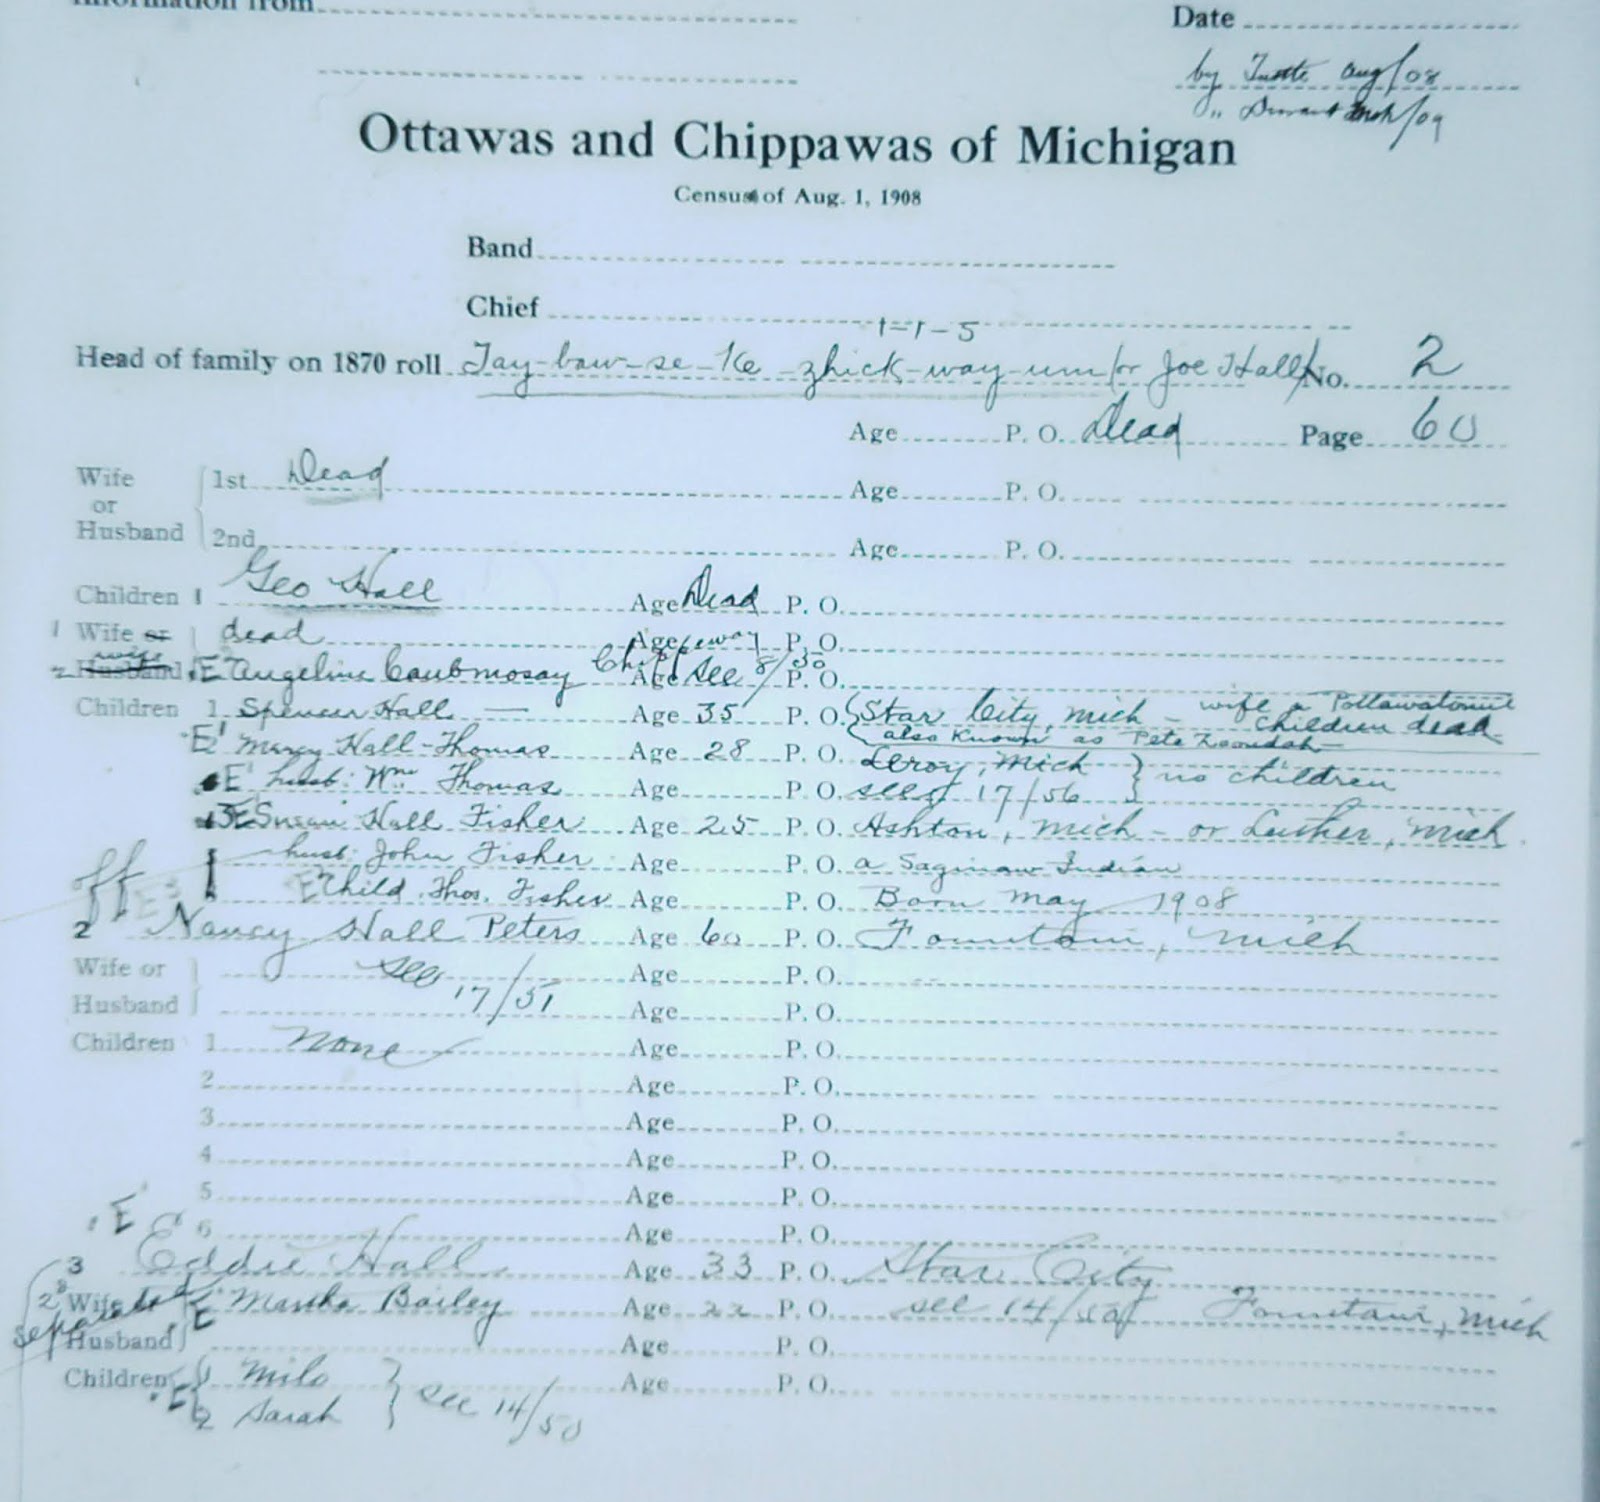 Information from
Date
by Tuttle Aug/08
" Durant Mch/09
Ottawas and Chippawas of Michigan
Census of Aug. 1, 1908
Band
Chief
1-1-5
Head of family on 1870 roll Tay-baw-se-ke-zhick-way-um/or Joe Hall/ No. 2
Age P. O. Dead Page 60
Wife or Husband 1st Dead Age P. O.
2nd Age P. O.
Children 1 Geo Hall Age Dead P. O.
1 Wife or dead Age P. O.
2 Husband wife E Angeline Caubmosay Chippeway Age see 8/50 P. O.
Children 1 Spencer Hall — Age 35 P. O. Star City, Mich - wife a Pottawatomie children dead
also known as Pete
E 2 Mercy Hall-Thomas Age 28 P. O. Leroy, Mich } no children
E husb: Wm Thomas Age P. O. see 17/56
3 E Susan Hall Fisher Age 25 P. O. Ashton, Mich - or Luther, Mich.
husb: John Fisher Age P. O. a Saginaw Indian
E Child Thos. Fisher Age P. O. Born May 1908
2 Nancy Hall Peters Age 60 P. O. Fountain, Mich
Wife or see Age P. O.
Husband 17/51 Age P. O.
Children 1 None Age P. O.
2 Age P. O.
3 Age P. O.
4 Age P. O.
5 Age P. O.
E 6 Age P. O.
3 Eddie Hall Age 33 P. O. Star City
2d Wife or E Martha Bailey Age 22 P. O. see 14/50 of Fountain, Mich
separated Husband Age P. O.
Children E 1 Milo } see 14/50 Age P. O.
2 Sarah